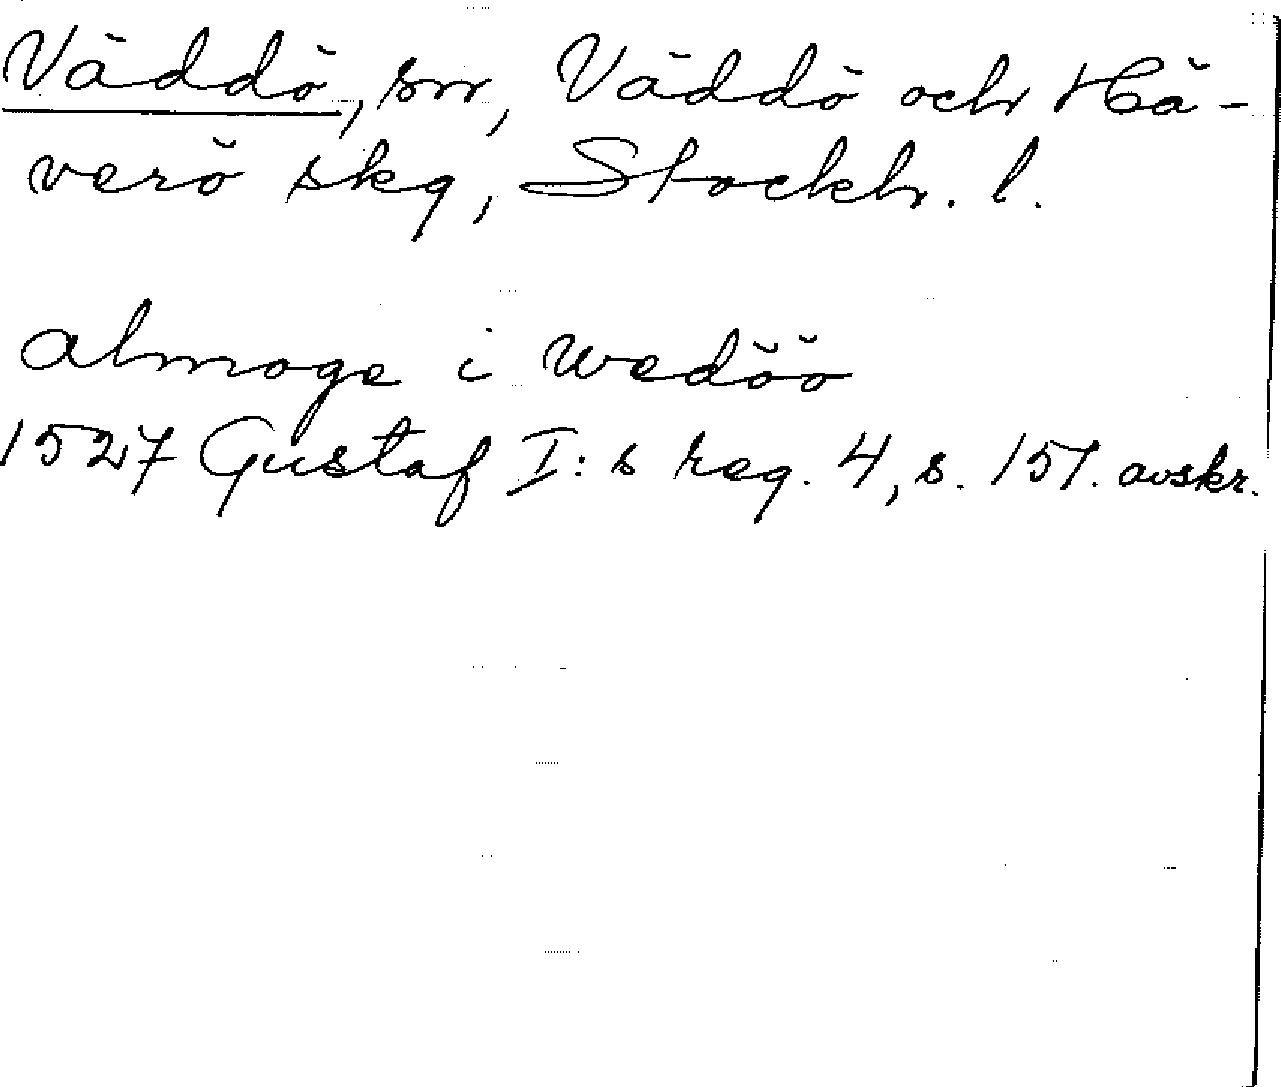 Väddö, sn, Väddö och Hä-
verö skg, Stockh. l.
almoge i wedöö
1527 Gustaf I:s reg. 4, s. 151. avskr.